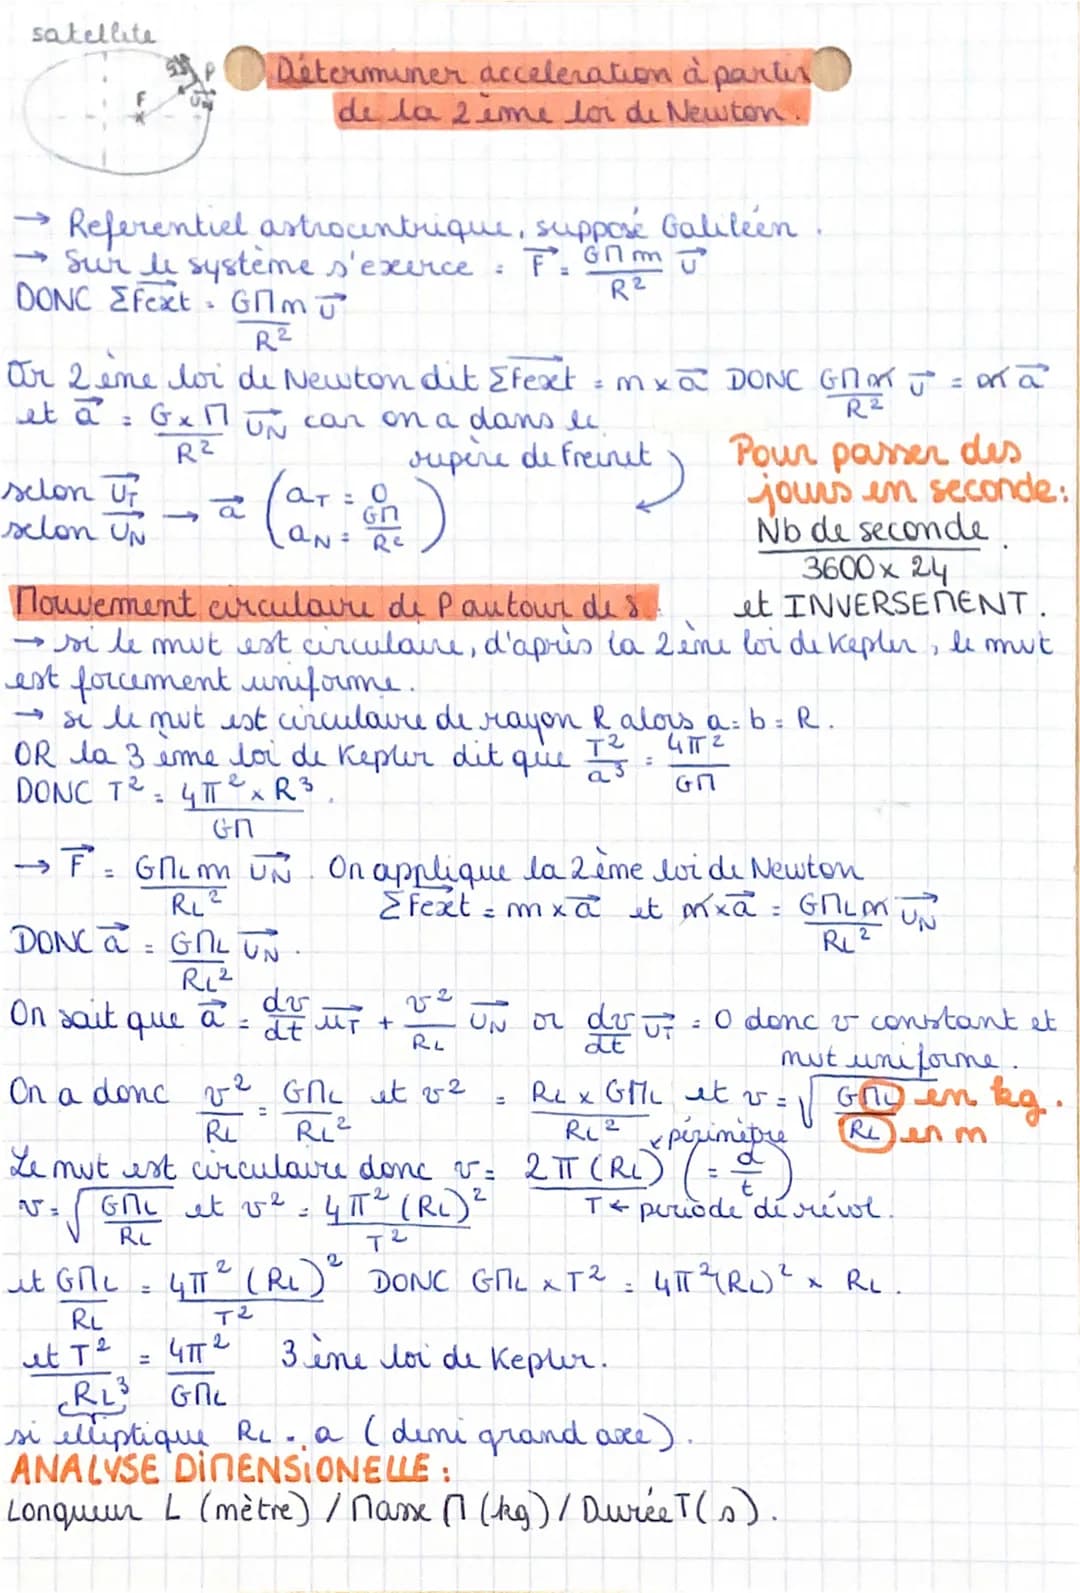 satellite
P
F
Déterminer acceleration à partir
de la 2ème loi de Newton.
→ Referentiel astrocentrique, supposé Galiléen.
→ Sur le système s'exerce : F→ = GMm/R² U→
DONC ΣFext→ = GMm/R² U→
Or 2ème loi de Newton dit ΣFext→ = m x a→ DONC GMm/R² U→ = m a→
et a→ = GxM/R² UN→ car on a dans le
repère de Freinet
selon UT→
selon UN→ → a→ ( aT = 0
aN = GM/R² )
Pour passer des
jours en seconde:
Nb de seconde
3600 x 24
et INVERSEMENT.
Mouvement circulaire de P autour de S.
→ si le mvt est circulaire, d'après la 2ème loi de Kepler, le mvt
est forcement uniforme.
→ si le mvt est circulaire de rayon R alors a = b = R.
OR la 3ème loi de Kepler dit que T²/a³ = 4π²/GM
DONC T² = 4π²/GM x R³.
→ F→ = GMLm/RL² UN→. On applique la 2ème loi de Newton
ΣFext→ = m x a→ et m x a→ = GMLm/RL² UN→
DONC a→ = GML/RL² UN→.
On sait que a→ = dv/dt uT→ + v²/RL UN→ or dv/dt UT→ = 0 donc v constant et
mvt uniforme.
On a donc v²/RL = GML/RL² et v² = RL x GML/RL² et v = √GML/RL en kg.
en m
périmètre
Le mvt est circulaire donc v = 2π(RL)/T (= d/t)
T ← periode de révol.
v = √GML/RL et v² = 4π²(RL)²/T²
et GML/RL = 4π²(RL)²/T² DONC GML x T² = 4π²(RL)² x RL.
et T²/RL³ = 4π²/GML 3ène loi de Kepler.
si elliptique RL = a (demi grand axe).
ANALYSE DiMENSiONELLE :
Longueur L (mètre) / Masse M (kg) / Durée T(s).